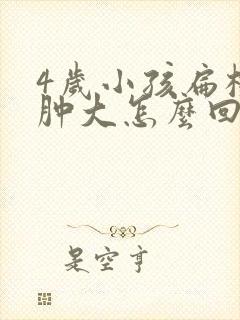 4歲小孩扁桃
肿大怎麼回
是空亨